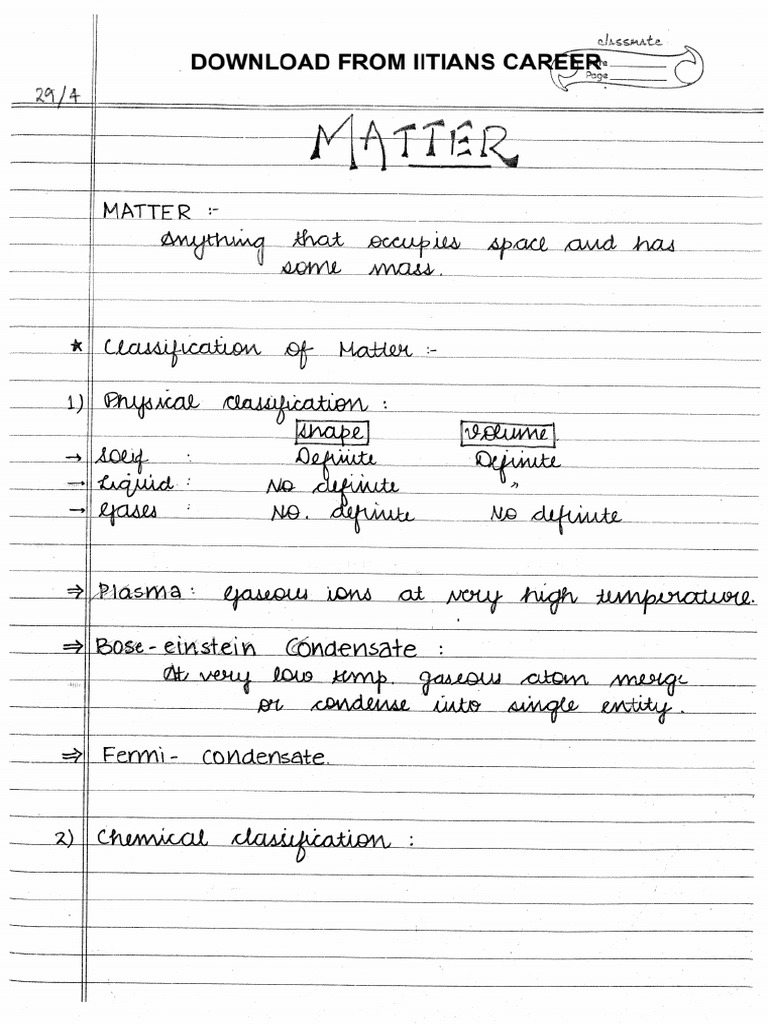 classmate
DOWNLOAD FROM IITIANS CAREER
Page
29/4
MATTER
MATTER :-
Anything that occupies space and has
some mass.
* Classification of Matter :-
1) Physical classification :
shape volume
→ Solid : Definite Definite
→ Liquid : No definite "
→ Gases : No. definite No definite
⇒ Plasma : Gaseous ions at very high temperature.
⇒ Bose-einstein Condensate :
At very low temp. gaseous atom merge
or condense into single entity.
⇒ Fermi- condensate.
2) Chemical classification :